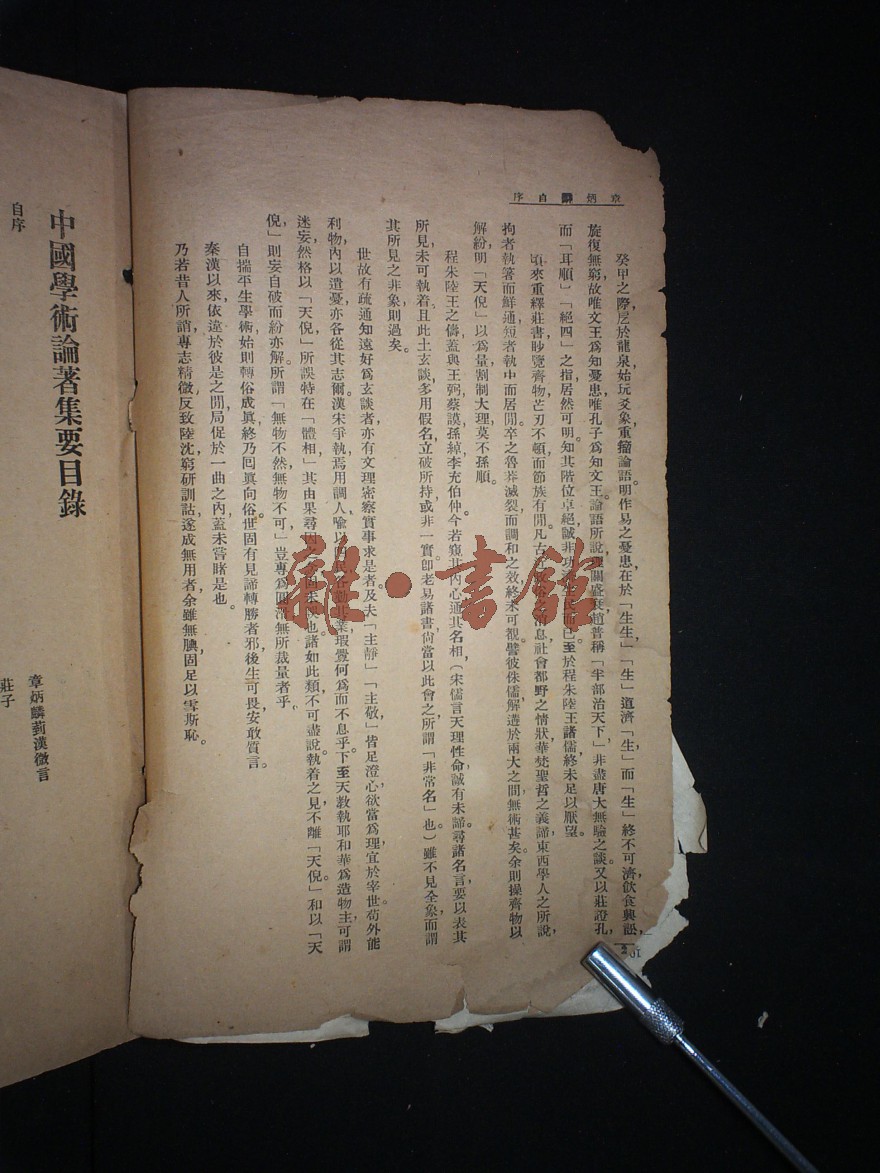 章炳麟自序
癸甲之際，戹於龍泉，始玩爻象，重籀論語。明作易之憂患，在於「生生」，「生」道濟「生」，而「生」終不可濟，飲食興訟，
旋復無窮。故唯文王爲知憂患，唯孔子爲知文王。論語所說，理關盛衰，趙普稱「半部治天下」，非盡唐大無驗之談。又以莊證孔，
而「耳順」「絕四」之指，居然可明。知其階位卓絕，誠非功濟生民而已。至於程朱陸王諸儒，終未足以厭望。
頃來重釋莊書，眇覽齊物，芒刃不頓，而節族有閒。凡古近政俗之消息，社會都野之情狀，華梵聖哲之義諦，東西學人之所說，
拘者執箸而鮮通，短者執中而居閒，卒之魯莽滅裂，而調和之效，終未可覩。譬彼侏儒，解遘於兩大之間，無術甚矣。余則操齊物以
解紛，明「天倪」以爲量，割制大理，莫不孫順。
程朱陸王之儔，蓋與王弼蔡謨孫綽李充伯仲。今若窺其內心，通其名相，（宋儒言天理性命，誠有未諦。尋諸名言，要以表其
所見，未可執着。且此土玄談，多用假名，立破所持，或非一實。卽老易諸書，尙當以此會之，所謂「非常名」也。）雖不見全象，而謂
其所見之非象，則過矣。
世故有疏通知遠好爲玄談者，亦有文理密察實事求是者，及夫「主靜」「主敬」，皆足澄心，欲當爲理，宜於宰世。苟外能
利物，內以遣憂，亦各從其志爾。漢宋爭執，焉用調人，喻以四民，各勤其業，瑕釁何爲而不息乎。下至天教，執耶和華爲造物主，可謂
迷妄，然格以「天倪」，所誤特在「體相」，其由果尋因之念，固未誤也。諸如此類，不可盡說。執着之見，不離「天倪」，和以「天
倪」，則妄自破而紛亦解。所謂「無物不然，無物不可」，豈專爲圓滑無所裁量者乎。
自揣平生學術，始則轉俗成眞，終乃囘眞向俗。世固有見諦轉勝者邪，後生可畏，安敢質言。
秦漢以來，依違於彼是之閒，局促於一曲之內，蓋未嘗睹是也。
乃若昔人所誚，專志精微，反致陸沈，窮研訓詁，遂成無用者，余雖無腆，固足以雪斯恥。
中國學術論著集要目錄
自序
章炳麟菿漢微言
莊子
雜·書館